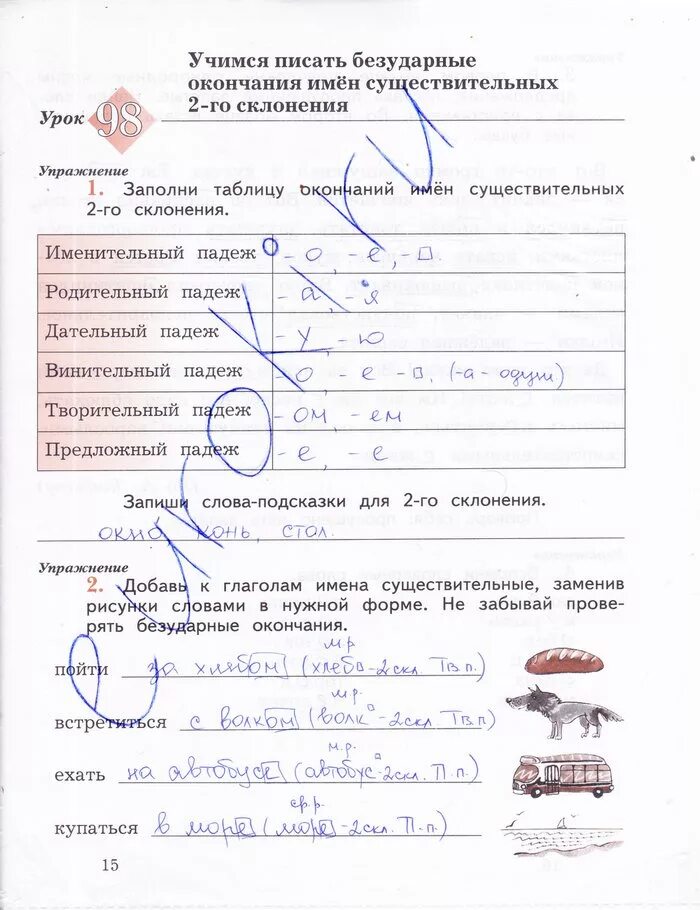 Учимся писать безударные
окончания имён существительных
2-го склонения
Урок 98
Упражнение
1. Заполни таблицу окончаний имён существительных
2-го склонения.
Именительный падеж -о, -е, -□
Родительный падеж -а, -я
Дательный падеж -у, -ю
Винительный падеж -о -е -□. (-а - одуш)
Творительный падеж -ом, -ем
Предложный падеж -е, -е
Запиши слова-подсказки для 2-го склонения.
окно, конь, стол.
Упражнение
2. Добавь к глаголам имена существительные, заменив
рисунки словами в нужной форме. Не забывай прове-
рять безударные окончания.
м.р.
пойти за хлебом (хлеб□-2скл. Тв.п.)
м.р.
встретиться с волком (волк□-2скл. Тв.п)
м.р.
ехать на автобусе (автобус□-2скл. П.п.)
ср.р.
купаться в море (море-2скл. П.п.)
15